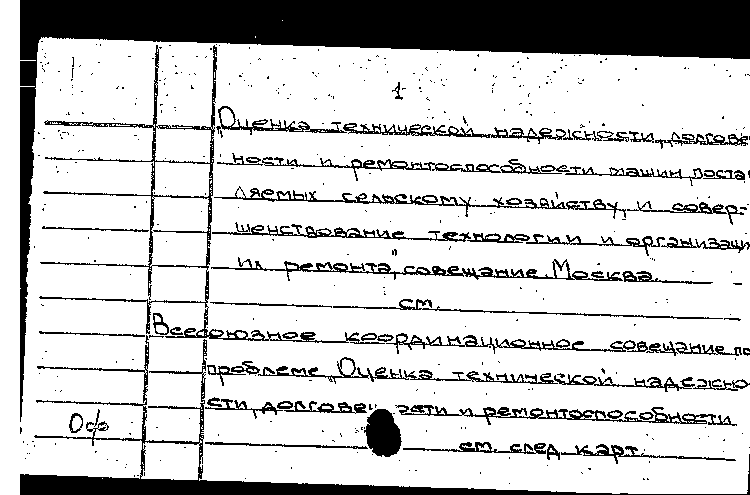 1
„Оценка технической надежности, долгове
ности и ремонтоспособности машин, поста
ляемых сельскому хозяйству, и совер-
шенствование технологии и организаци
их ремонта", совещание. Москва.
см.
Всесоюзное координационное совещание по
проблеме „Оценка технической надежно
сти, долговеч ости и ремонтоспособности
Офо см. след. карт.